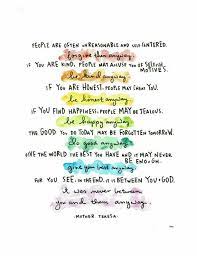 PEOPLE ARE OFTEN UNREASONABLE AND SELF CENTERED.
forgive them anyway.
IF YOU ARE KIND, PEOPLE MAY ACCUSE YOU OF SELFISH
MOTIVES.
be kind anyway.
IF YOU ARE HONEST, PEOPLE MAY CHEAT YOU.
be honest anyway.
IF YOU FIND HAPPINESS, PEOPLE MAY BE JEALOUS.
be happy anyway.
THE GOOD YOU DO TODAY MAY BE FORGOTTEN TOMORROW.
do good anyway.
GIVE THE WORLD THE BEST YOU HAVE AND IT MAY NEVER
BE ENOUGH.
give your best anyway.
FOR YOU SEE, IN THE END, IT IS BETWEEN YOU + GOD.
it was never between
you and them anyway.
-MOTHER TERESA-